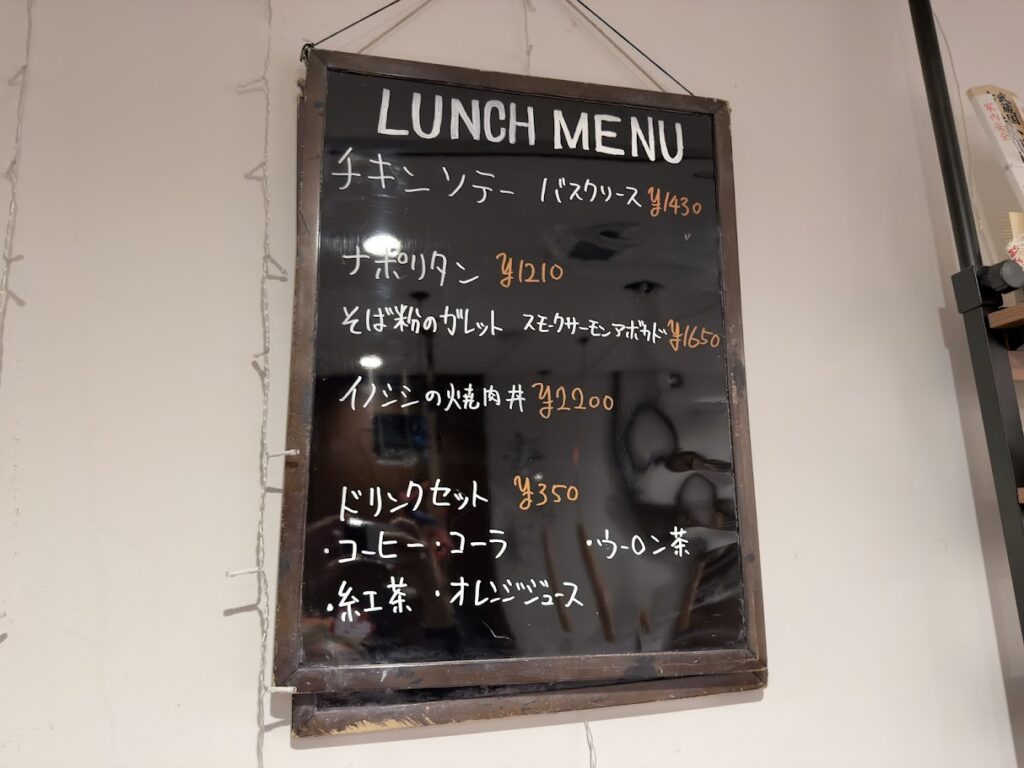 LUNCH MENU
チキンソテー バスクソース ¥1430
ナポリタン ¥1210
そば粉のガレット スモークサーモンアボカド ¥1650
イノシシの焼肉丼 ¥2200
ドリンクセット ¥350
・コーヒー・コーラ ・ウーロン茶
・紅茶 ・オレンジジュース
家内安全